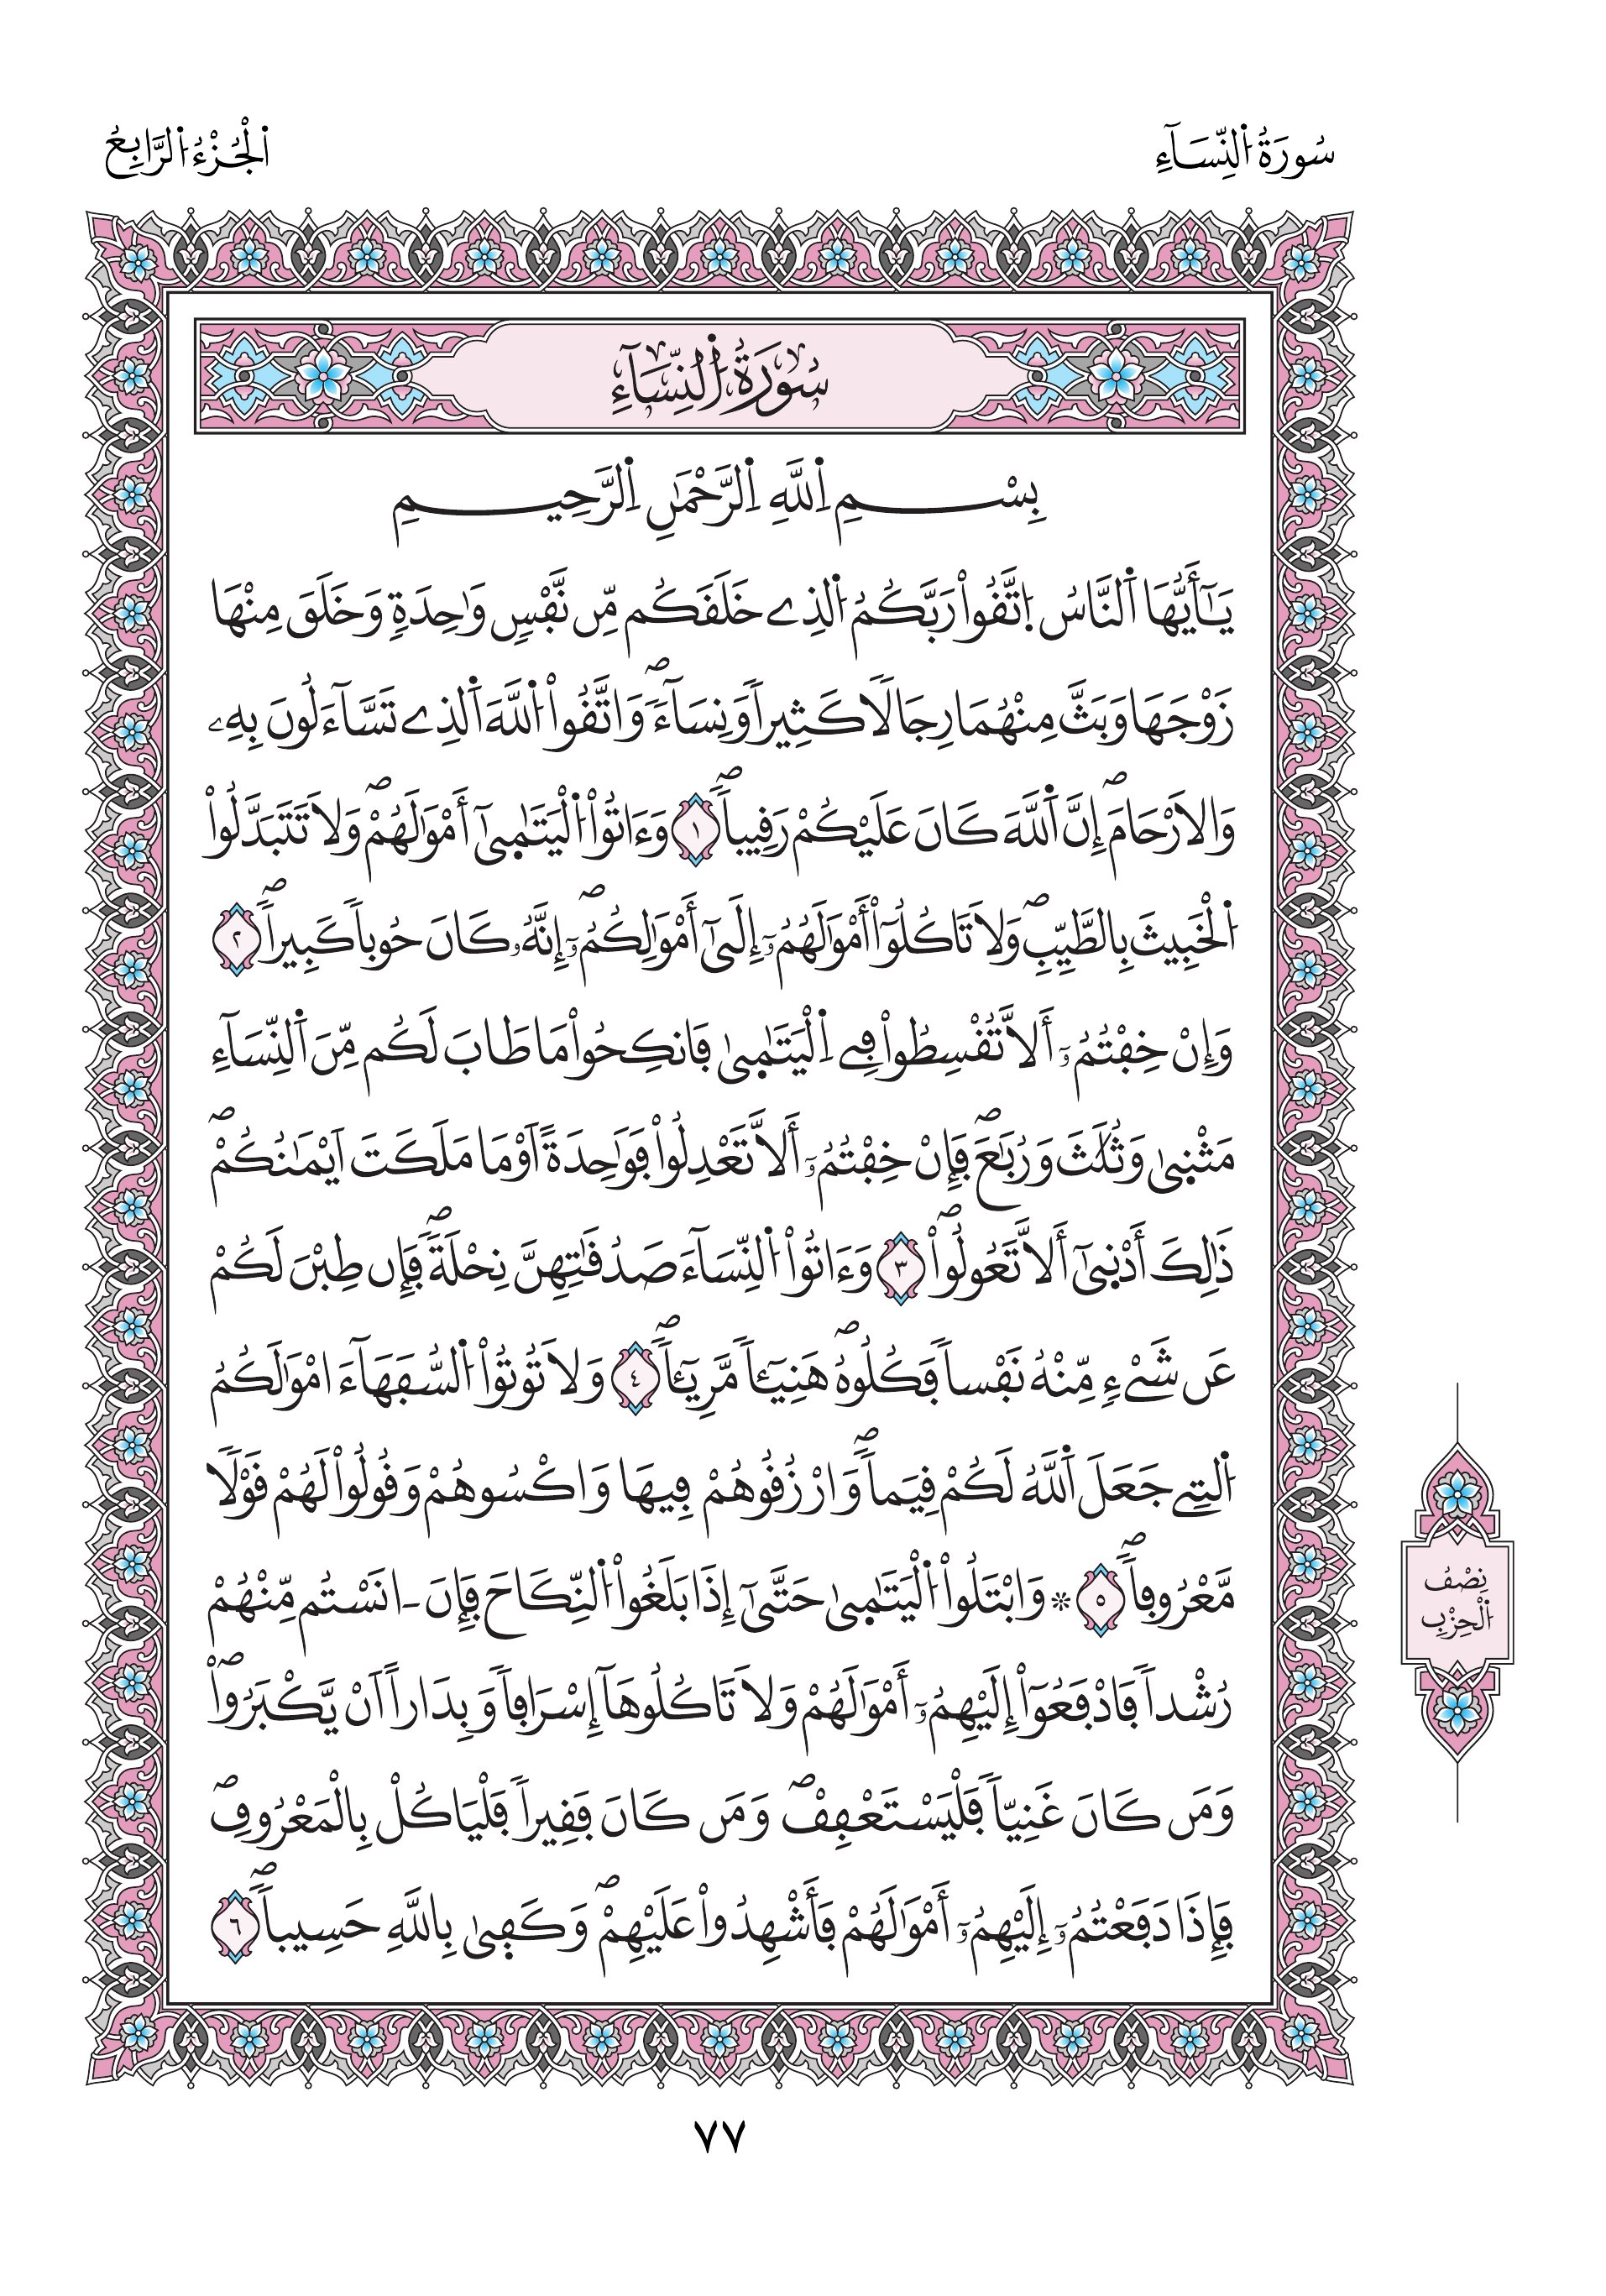 سُورَةُ اُ۬لنِّسَآءِ
اَ۬لْجُزْءُ اُ۬لرَّابِعُ
سُورَةُ اُ۬لنِّسَآءِ
بِسْمِ اِ۬للَّهِ اِ۬لرَّحْمَٰنِ اِ۬لرَّحِيمِ
يَٰٓأَيُّهَا اَ۬لنَّاسُ اُ۪تَّقُواْ رَبَّكُمُ اُ۬لذِے خَلَقَكُم مِّن نَّفْسٖ وَٰحِدَةٖ وَخَلَقَ مِنْهَا
زَوْجَهَا وَبَثَّ مِنْهُمَا رِجَالاٗ كَثِيراٗ وَنِسَآءٗۖ وَاتَّقُواْ اُ۬للَّهَ اَ۬لذِے تَسَّآءَلُونَ بِهِۦ
وَالَارْحَامَۖ إِنَّ اَ۬للَّهَ كَانَ عَلَيْكُمْ رَقِيباٗۖ ١ وَءَاتُواْ اُ۬لْيَتَٰمَىٰٓ أَمْوَٰلَهُمْۖ وَلَا تَتَبَدَّلُواْ
اُ۬لْخَبِيثَ بِالطَّيِّبِۖ وَلَا تَاكُلُوٓاْ أَمْوَٰلَهُمُۥٓ إِلَىٰٓ أَمْوَٰلِكُمُۥٓۖ إِنَّهُۥ كَانَ حُوباٗ كَبِيراٗۖ ٢
وَإِنْ خِفْتُمُۥٓ أَلَّا تُقْسِطُواْ فِے اِ۬لْيَتَٰمَىٰ فَانكِحُواْ مَا طَابَ لَكُم مِّنَ اَ۬لنِّسَآءِ
مَثْنَىٰ وَثُلَٰثَ وَرُبَٰعَۖ فَإِنْ خِفْتُمُۥٓ أَلَّا تَعْدِلُواْ فَوَٰحِدَةً اَوْ مَا مَلَكَتَ اَيْمَٰنُكُمْۖ
ذَٰلِكَ أَدْنَىٰٓ أَلَّا تَعُولُواْۖ ٣ وَءَاتُواْ اُ۬لنِّسَآءَ صَدُقَٰتِهِنَّ نِحْلَةٗۖ فَإِن طِبْنَ لَكُمْ
عَن شَےْءٖ مِّنْهُ نَفْساٗ فَكُلُوهُۖ هَنِيٓـٔاٗ مَّرِيٓـٔاٗۖ ٤ وَلَا تُوتُواْ اُ۬لسُّفَهَآءَ امْوَٰلَكُمُ
اُ۬لتِے جَعَلَ اَ۬للَّهُ لَكُمْ قِيَماٗۖ وَارْزُقُوهُمْ فِيهَا وَاكْسُوهُمْ وَقُولُواْ لَهُمْ قَوْلاٗ
مَّعْرُوفاٗۖ ٥ ۞ وَابْتَلُواْ اُ۬لْيَتَٰمَىٰ حَتَّىٰٓ إِذَا بَلَغُواْ اُ۬لنِّكَاحَ فَإِنَ ـ انَسْتُم مِّنْهُمْ
رُشْداٗ فَادْفَعُوٓاْ إِلَيْهِمُۥٓ أَمْوَٰلَهُمْ وَلَا تَاكُلُوهَآ إِسْرَافاٗ وَبِدَاراً اَنْ يَّكْبَرُواْۖ
وَمَن كَانَ غَنِيّاٗ فَلْيَسْتَعْفِفْۖ وَمَن كَانَ فَقِيراٗ فَلْيَاكُلْ بِالْمَعْرُوفِۖ
فَإِذَا دَفَعْتُمُۥٓ إِلَيْهِمُۥٓ أَمْوَٰلَهُمْ فَأَشْهِدُواْ عَلَيْهِمْۖ وَكَفَىٰ بِاللَّهِ حَسِيباٗۖ ٦
نِصْفُ
اُ۬لْحِزْبِ
٧٧